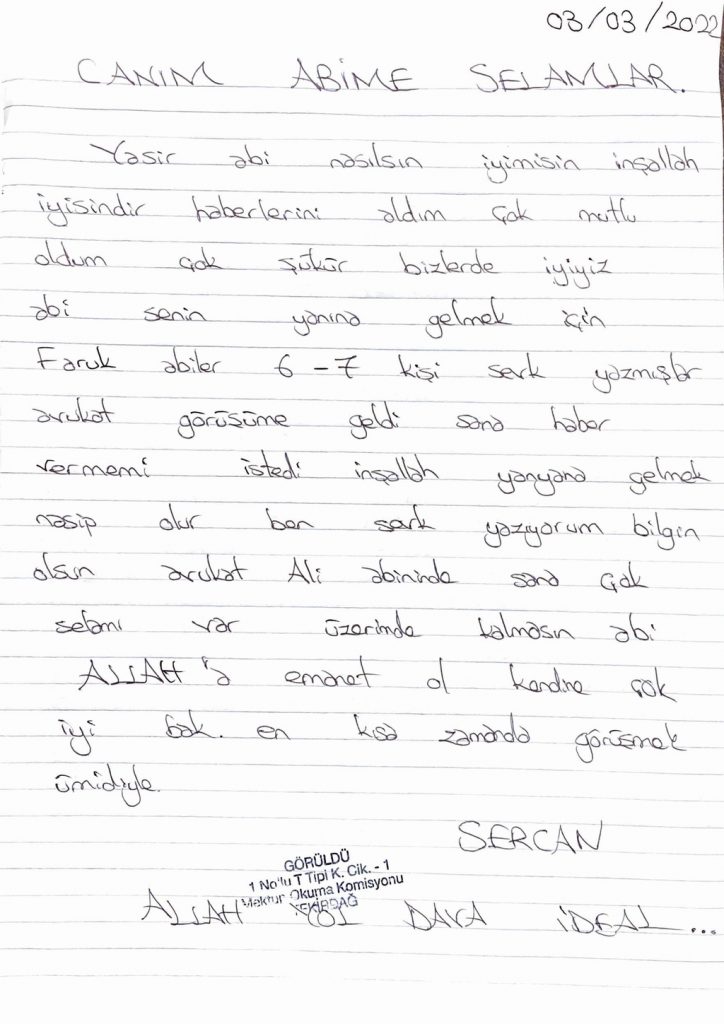 03/03/2022
CANIM ABİME SELAMLAR.
Yasir abi nasılsın iyimisin inşallah
iyisindir haberlerini aldım çok mutlu
oldum çok şükür bizlerde iyiyiz
abi senin yanına gelmek için
Faruk abiler 6-7 kişi sevk yazmışlar
avukat görüşüme geldi sana haber
vermemi istedi inşallah yanyana gelmek
nasip olur ben sevk yazıyorum bilgin
olsun avukat Ali abininde sana çok
selamı var üzerimde kalmasın abi
ALLAH'a emanet ol kendine çok
iyi bak. en kısa zamanda görüşmek
ümidiyle.
SERCAN
GÖRÜLDÜ
1 No'lu T Tipi K. Cik. - 1
Mektup Okuma Komisyonu
TEKİRDAĞ
ALLAH YOL DAVA İDEAL...